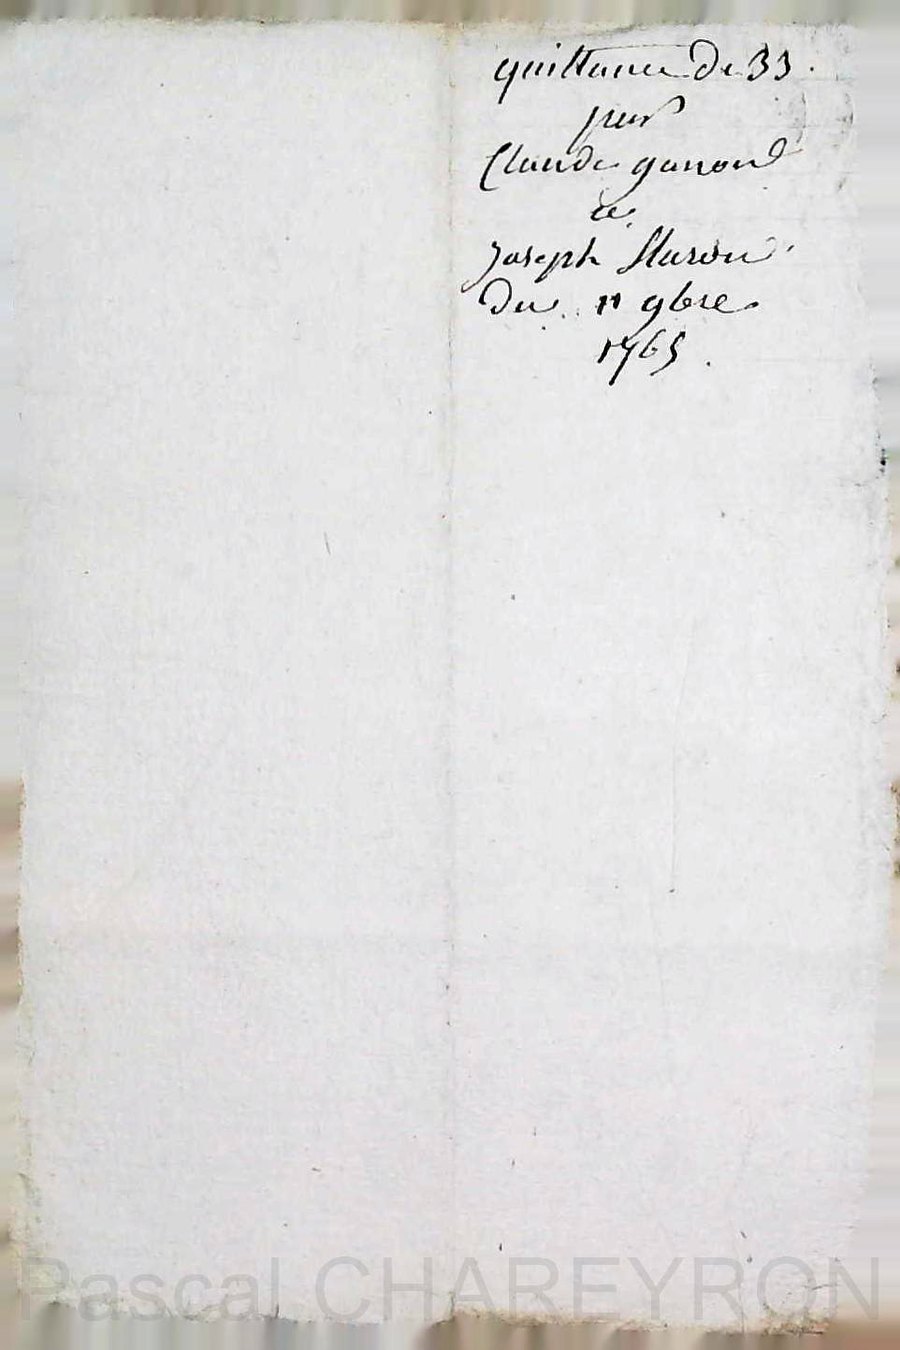 quittance de 33
par
Claude ganon
a
Joseph
du 11 9bre
1765
Pascal CHAREYRON